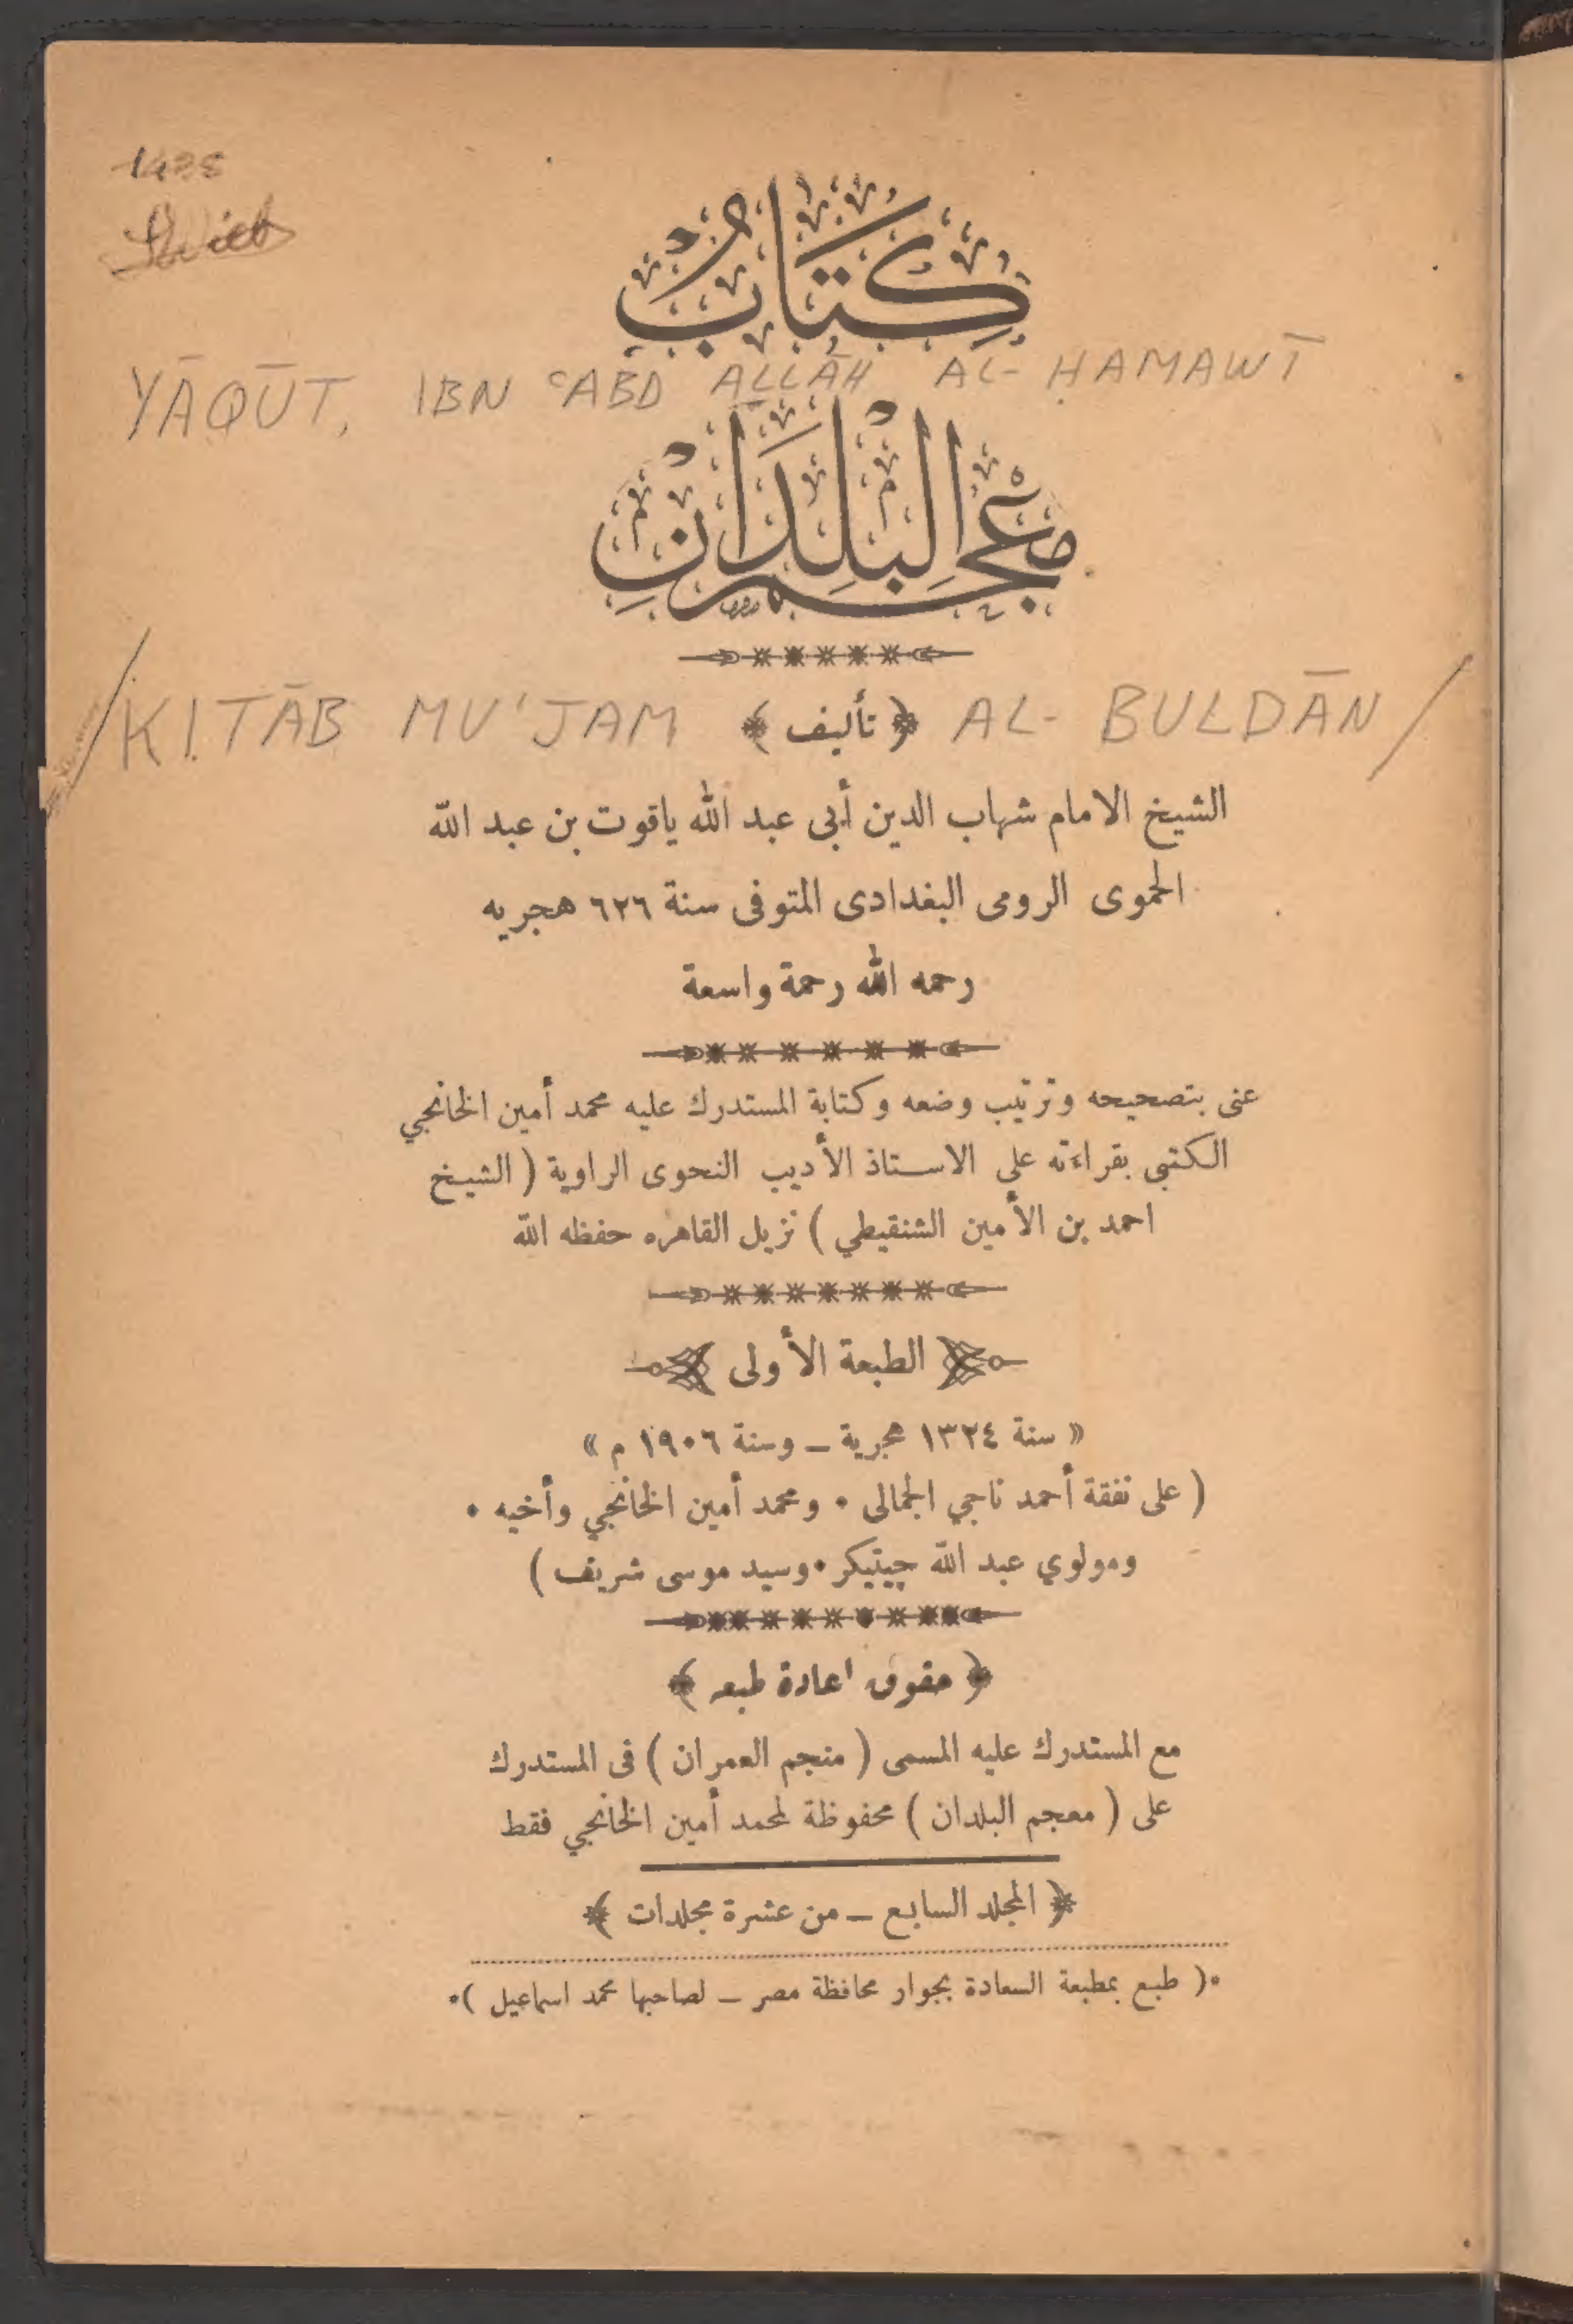 كتاب
YĀQŪT, IBN ʿABD ALLĀH AL-ḤAMAWĪ
معجم البلدان
/KITĀB MU'JAM AL-BULDĀN/
﴿ تأليف ﴾
الشيخ الامام شهاب الدين أبى عبد الله ياقوت بن عبد الله
الحموى الرومى البغدادى المتوفى سنة ٦٢٦ هجريه
رحمه الله رحمة واسعة
عنى بتصحيحه وترتيب وضعه وكتابة المستدرك عليه محمد أمين الخانجي
الكتبى بقراءته على الاستاذ الأديب النحوى الراوية ( الشيخ
احمد بن الأمين الشنقيطي ) نزيل القاهره حفظه الله
الطبعة الأولى
« سنة ١٣٢٤ هجرية ــ وسنة ١٩٠٦ م »
( على نفقة أحمد ناجي الجمالى • ومحمد أمين الخانجي وأخيه •
ومولوي عبد الله چيتيكر • وسيد موسى شريف )
﴿ حقوق اعادة طبعه ﴾
مع المستدرك عليه المسمى ( منجم العمران ) فى المستدرك
على ( معجم البلدان ) محفوظة لمحمد أمين الخانجي فقط
﴿ المجلد السابع ــ من عشرة مجلدات ﴾
•( طبع بمطبعة السعادة بجوار محافظة مصر ــ لصاحبها محمد اسماعيل )•